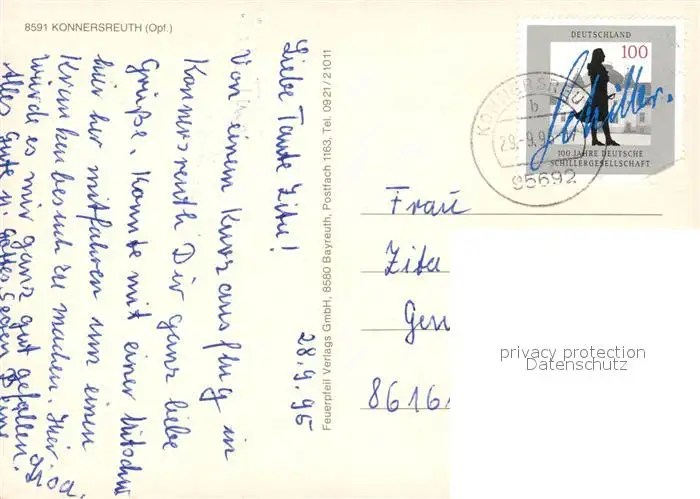 8591 KONNERSREUTH (Opf.)
28.9.95
Liebe Tante Zita!
Von einem Kurzausflug in
Konnersreuth Dir ganz liebe
Grüße. Konnte mit einer Mitschw.
hier her mitfahren um einen
Krankenbesuch zu machen. Hier
würde es mir ganz gut gefallen.
Alles Gute u. Gottes Segen
Feuerpfeil Verlags GmbH, 8580 Bayreuth, Postfach 1163, Tel. 0921/21011
DEUTSCHLAND
100
Schiller.
100 JAHRE DEUTSCHE
SCHILLERGESELLSCHAFT
KONNERSREUTH
b
95692
Frau
Zita
Gen
8616
privacy protection
Datenschutz